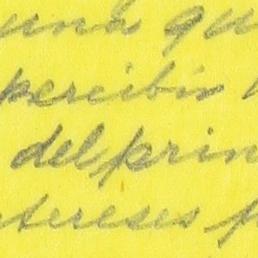 una qu
percibir
del prin
tereses p